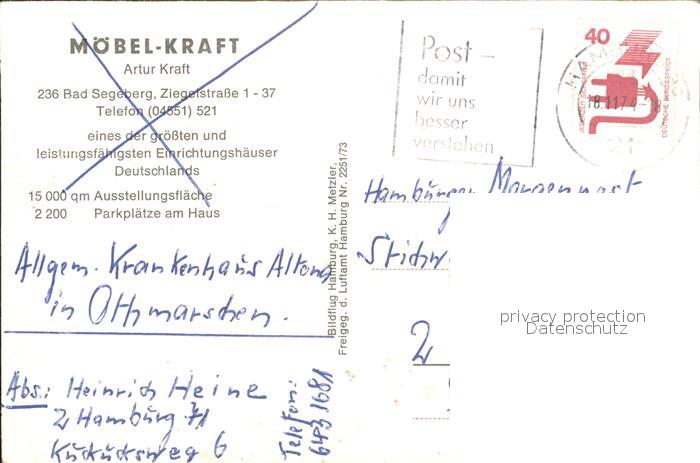 MÖBEL-KRAFT
Artur Kraft
236 Bad Segeberg, Ziegelstraße 1 - 37
Telefon (04551) 521
eines der größten und
leistungsfähigsten Einrichtungshäuser
Deutschlands
15 000 qm Ausstellungsfläche
2 200 Parkplätze am Haus
Allgem. Krankenhaus Altona
in Othmarschen.
Abs.: Heinrich Heine
2 Hamburg 71
Kuckucksweg 6
Telefon:
643 1681
Bildflug Hamburg, K. H. Metzler,
Freigeg. d. Luftamt Hamburg Nr. 2251/73
Post –
damit
wir uns
besser
verstehen
40
JEDERZEIT SICHERHEIT
DEUTSCHE BUNDESPOST
18.11.74
21
Hamburger Morgenpost
2
privacy protection
Datenschutz